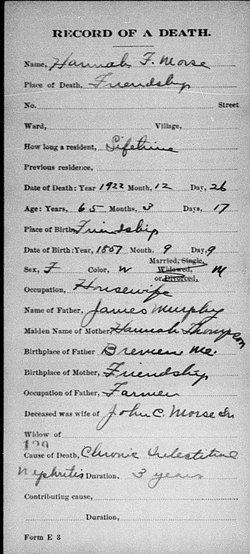 RECORD OF A DEATH.
Name, Hannah F. Morse
Place of Death, Friendship
No. Street
Ward, Village,
How long a resident, Lifetime
Previous residence,
Date of Death: Year 1922 Month, 12 Day, 26
Age: Years, 65 Months, 3 Days, 17
Place of Birth, Friendship
Date of Birth: Year, 1857 Month, 9 Day, 9
Sex, F Color, W Married, Single, Widowed, or Divorced, M
Occupation, Housewife
Name of Father, James Murphy
Maiden Name of Mother, Hannah Thompson
Birthplace of Father Bremen Me.
Birthplace of Mother, Friendship
Occupation of Father, Farmer
Deceased was wife of John C. Morse Sr
Widow of
129
Cause of Death, Chronic Intestitial
Nephritis Duration, 3 years
Contributing cause,
Duration,
Form E 3